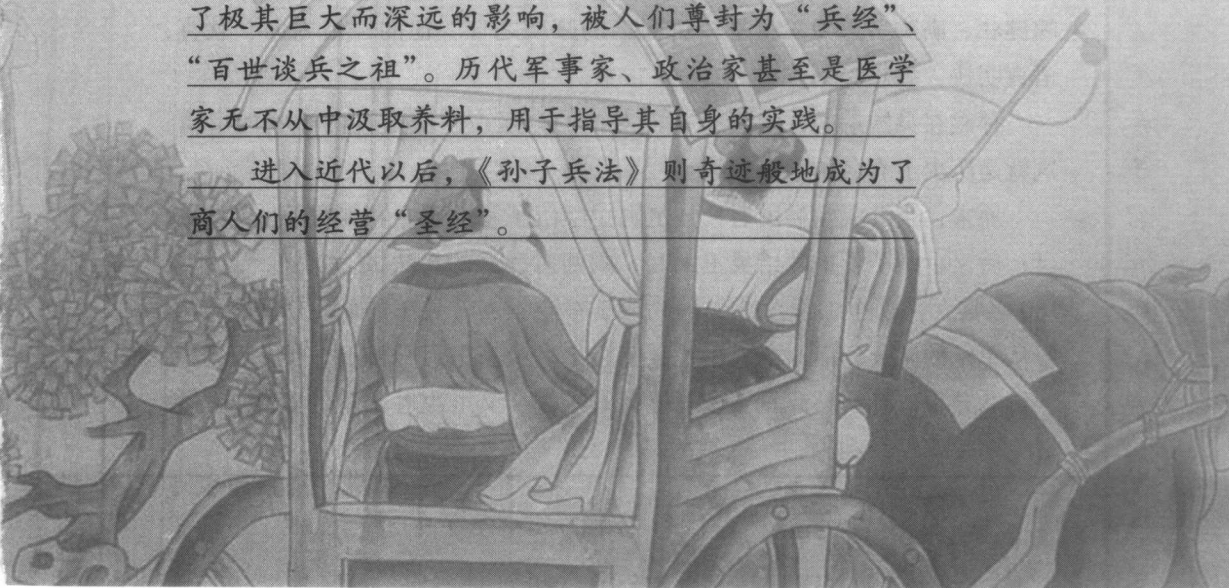 了极其巨大而深远的影响，被人们尊封为“兵经”、
“百世谈兵之祖”。历代军事家、政治家甚至是医学
家无不从中汲取养料，用于指导其自身的实践。
进入近代以后，《孙子兵法》则奇迹般地成为了
商人们的经营“圣经”。